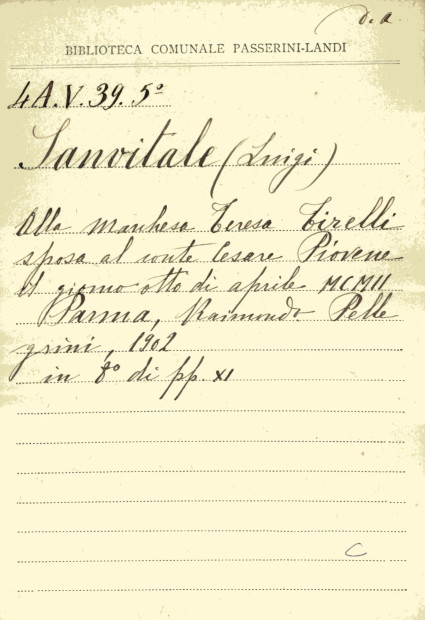 d. a.
BIBLIOTECA COMUNALE PASSERINI-LANDI
4 A. V. 39. 5º
Sanvitale (Luigi)
Alla Marchesa Teresa Tirelli
sposa al conte Cesare Piovene
il giorno otto di aprile MCMII
Parma, Raimondo Pelle
grini, 1902
in 8º di pp. XI
C